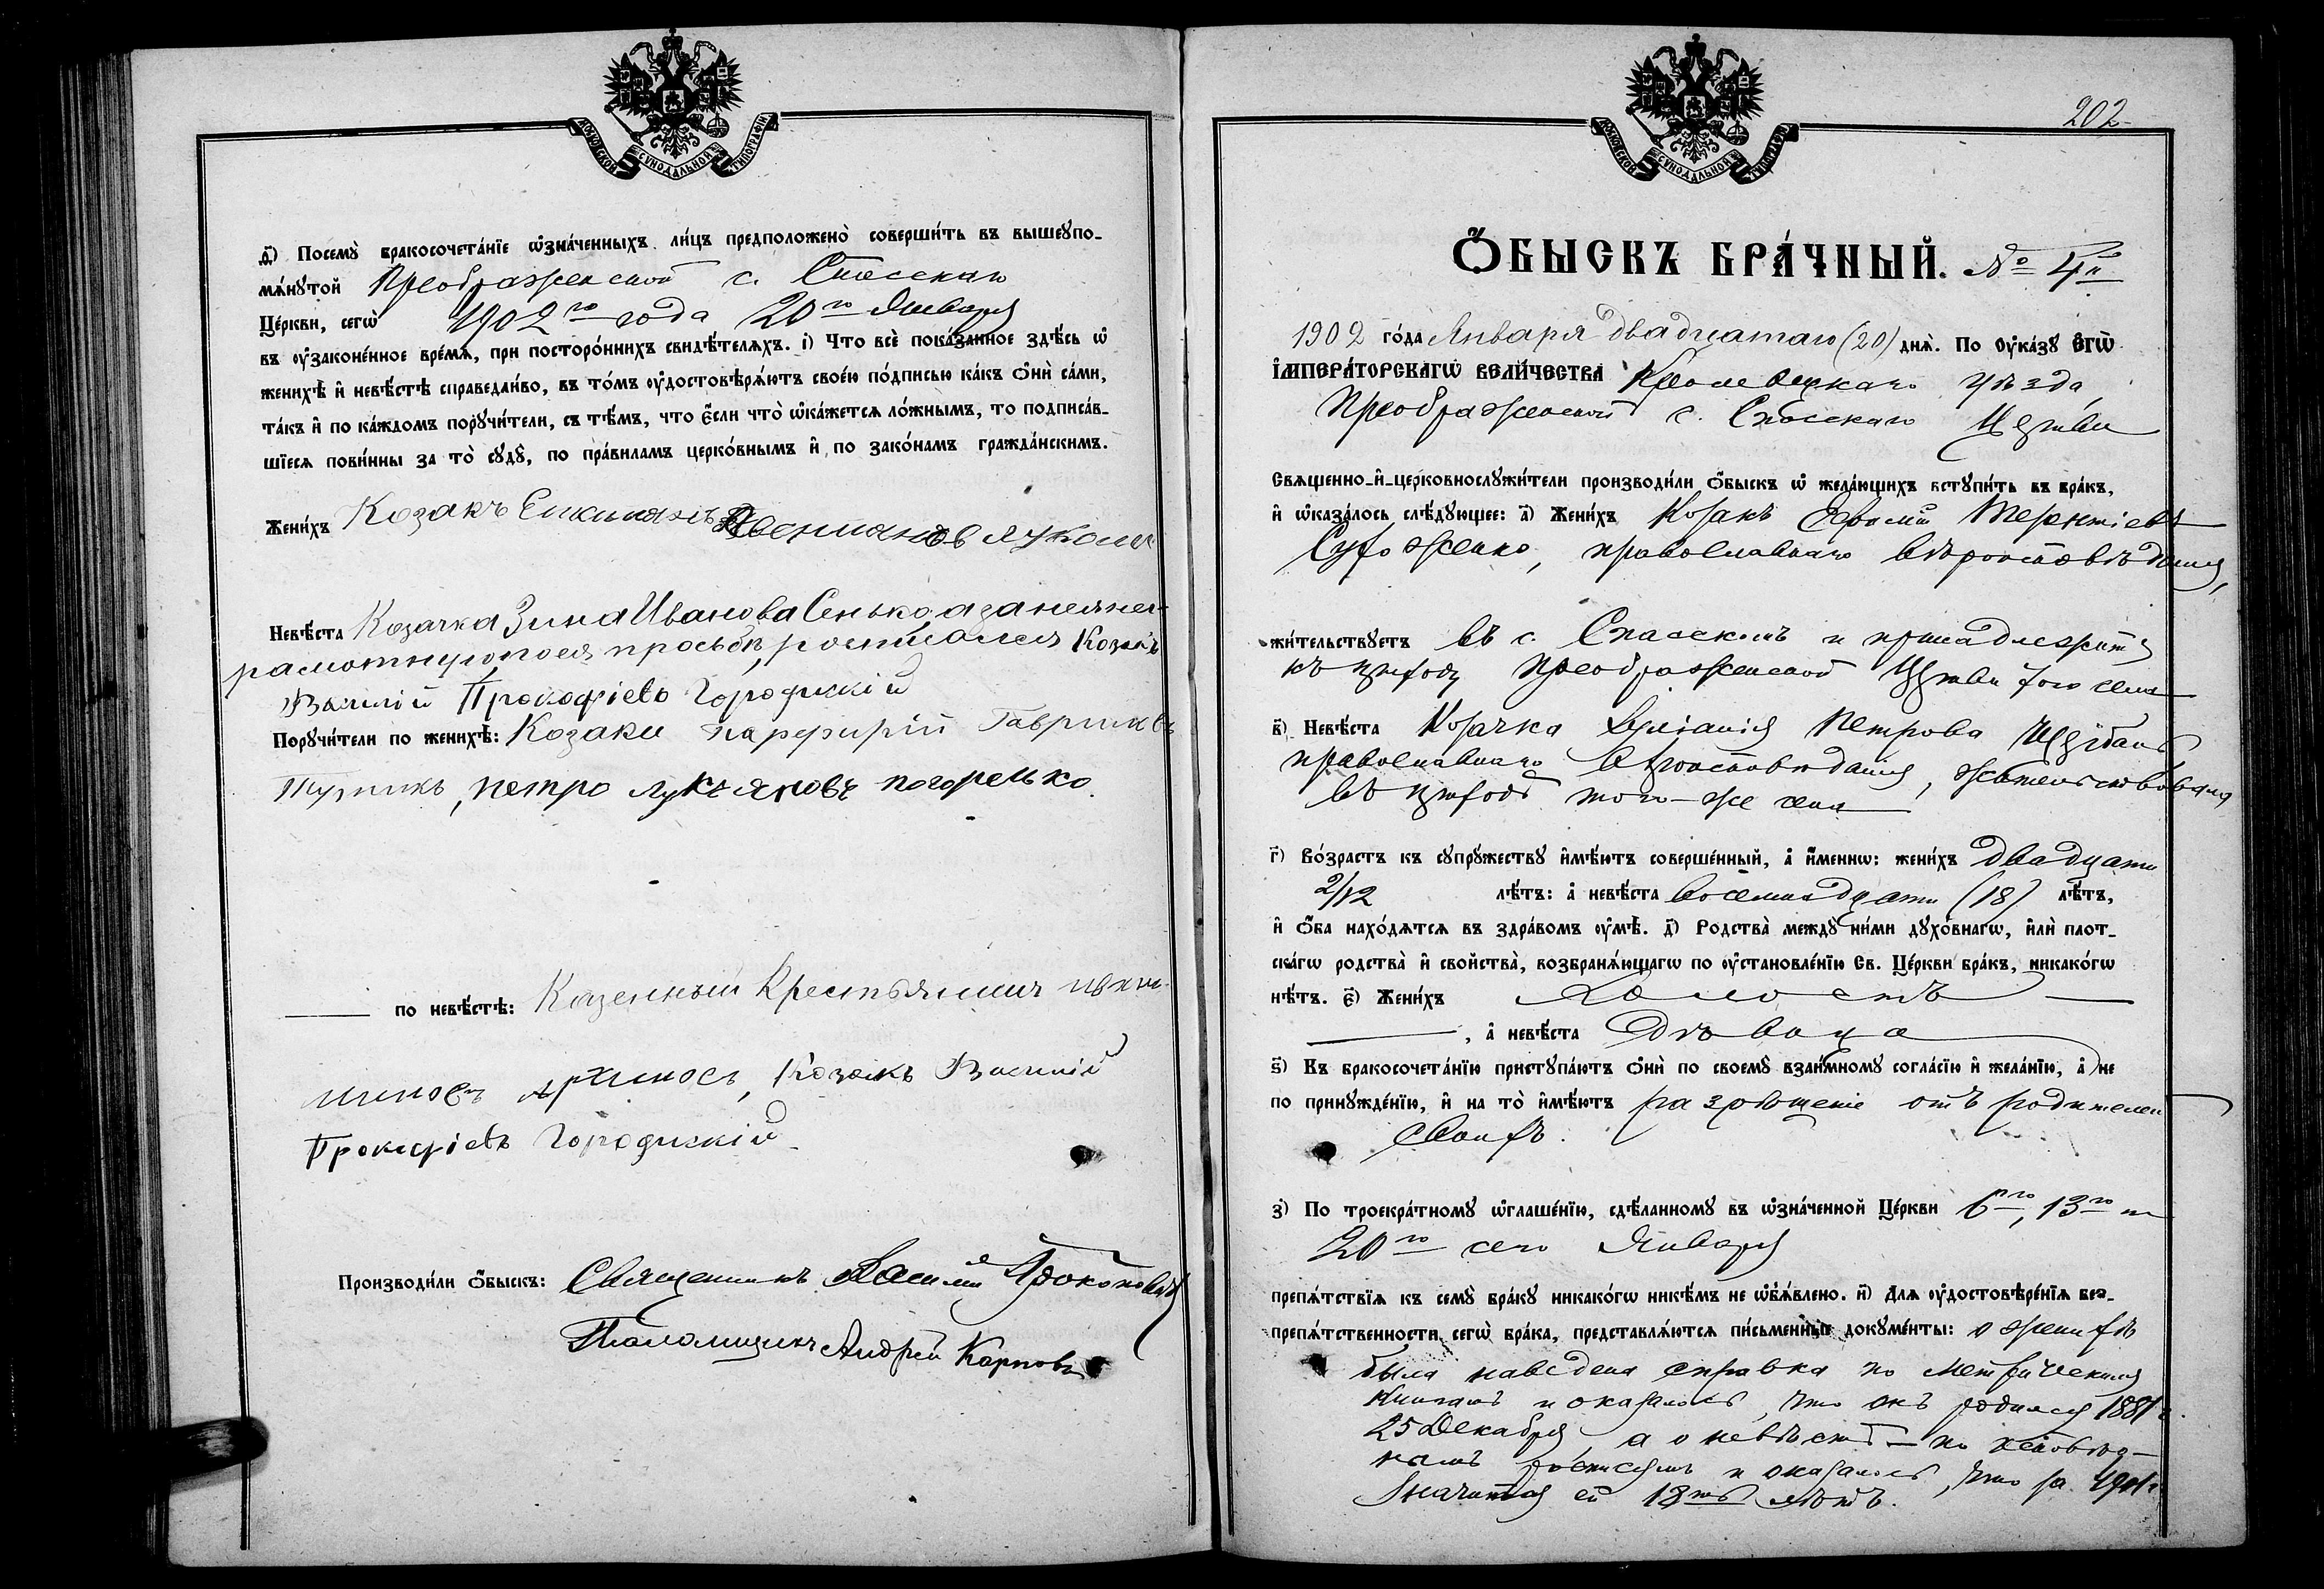 МОСКОВСКОЙ СѴНОДАЛЬНОЙ ТИПОГРАФІИ
д҃) Посемꙋ̀ бракосочета́нїе ѡ҆зна́ченныхъ ли́цъ предположено̀ соверши́ть въ вышеꙋпо-
мѧ́нꙋтой Преображенской с. Спасскаго
Це́ркви, сегѡ̀ 1902го года 20го Января
въ ᲂу҆законе́нное вре́мѧ, при посторо́ннихъ свидѣ́телѧхъ. і҃) Что̀ всѐ пока́занное здѣ́сь ѡ҆
женихѣ̀ и҆ невѣ́стѣ справедли́во, въ то́мъ ᲂу҆достовѣрѧ́ютъ свое́ю по́дписью ка́къ ѻ҆нѝ са́ми,
та́къ и҆ по ка́ждомъ порꙋчи́тели, съ тѣ́мъ, что є҆́сли что̀ ѡ҆ка́жетсѧ ло́жнымъ, то подписа́в-
шїесѧ пови́нны за то̀ сꙋдꙋ̀, по пра́виламъ церко́внымъ и҆ по зако́намъ гражда́нскимъ.
Жени́хъ Козакъ
Невѣ́ста Козачка Зина Иванова Сенько, а за нея нег-
рамотную, по ея просьбѣ, росписался Козакъ
Василій Прокофіевъ Городискій
Порꙋчи́тели по женихѣ̀: Козаки Парфирій Гавриловъ
петро лукьяновъ погорелько
по невѣ́стѣ: Казенный Крестьянинъ
Козакъ Василій
Прокофіевъ Городискій
Производи́ли ѻ҆́быскъ: Священникъ Василій Прокоповичъ
Паломщикъ Андрей Карповъ
МОСКОВСКОЙ СѴНОДАЛЬНОЙ ТИПОГРАФІИ
202
Ѻ҆́БЫСКЪ БРА́ЧНЫЙ. № 4й
1902 го́да Января двадцатаго (20) днѧ̀. По ᲂу҆ка́зꙋ Є҆ГѠ̀
І҆МПЕРА́ТОРСКАГѠ ВЕЛИ́ЧЕСТВА Кролевецкаго уѣзда,
Преображенской с. Спасскаго Церкви
Свѧщенно-и҆-церковнослꙋжи́тели производи́ли ѻ҆́быскъ ѡ҆ жела́ющихъ встꙋпи́ть въ бра́къ,
и҆ ѡ҆каза́лось слѣ́дꙋющее: а҃) Жени́хъ Козакъ Терентіевъ
православнаго вѣроисповѣданія,
жи́тельствꙋетъ въ с. Спасскомъ и принадлежитъ
къ приходу Преображенской Церкви того села
в҃) Невѣ́ста Козачка Петрова
православнаго вѣроисповѣданія, жительствовавшая
въ приходѣ того-же села
г҃) Во́зрастъ къ сꙋпрꙋ́жествꙋ и҆мѣ́ютъ соверше́нный, а҆ и҆́менно: жени́хъ двадцати
2/12 лѣ́тъ: а҆ невѣ́ста восемнадцати (18) лѣ́тъ,
и҆ ѻ҆́ба нахо́дѧтсѧ въ здра́вомъ ᲂу҆мѣ̀. д҃) Родства̀ междꙋ̀ ни́ми дꙋхо́внагѡ, и҆лѝ плот-
ска́гѡ родства̀ и҆ сво́йства̀, возбранѧ́ющагѡ по ᲂу҆становле́нїю Св. Це́ркви бра́къ, никако́гѡ
нѣ́тъ. є҃) Жени́хъ холостъ
, а҆ невѣ́ста дѣвица
ѕ҃) Къ бракосочета́нїю пристꙋпа́ютъ ѻ҆нѝ по своемꙋ̀ взаи́мномꙋ согла́сїю и҆ жела́нїю, а҆ не
по принꙋжде́нїю, и҆ на то̀ и҆мѣ́ютъ разрѣшеніе отъ родителей
своихъ.
з҃) По троекра́тномꙋ ѡ҆глаше́нїю, сдѣ́ланномꙋ въ ѡ҆зна́ченной Це́ркви 6го, 13го и
20го сего Января
препѧ́тствїѧ къ семꙋ̀ бра́кꙋ никако́гѡ никѣ́мъ не ѡ҆б̾ѧ́влено. и҃) Длѧ ᲂу҆достовѣре́нїѧ без-
препѧ́тственности сегѡ̀ бра́ка, представлѧ́ютсѧ пи́сьменные докꙋме́нты: о женихѣ
была наведена справка по метрическимъ
книгамъ и оказалось, что онъ родился 1881 г.
25 Декабря, а о невѣстѣ – по исповѣд-
нымъ росписямъ и оказалось, что за 1901 г.
значится ей 18ть лѣтъ.